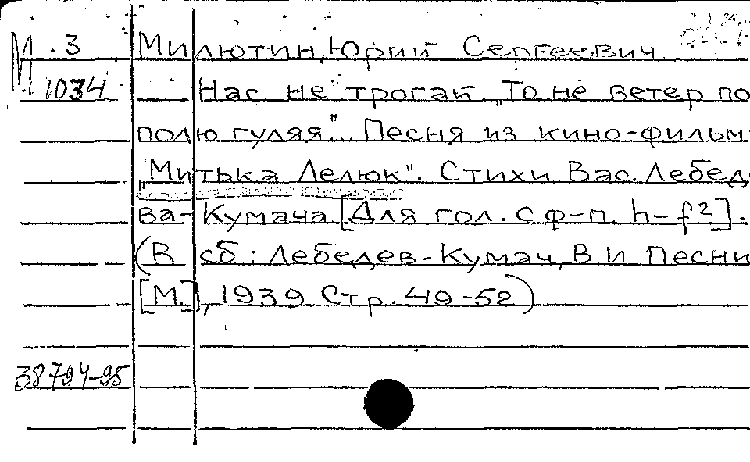 М.3 Милютин, Юрий Сергеевич
М 1034 Нас не трогай „То не ветер по
полю гуляя"... Песня из кино-фильм
„Митька Лелюк". Стихи Вас. Лебеде
ва-Кумача. [Для гол. с ф-п. h-f²].
(В сб: Лебедев-Кумач, В И Песни
[М.], 1939 Стр. 49-52)
38794-95